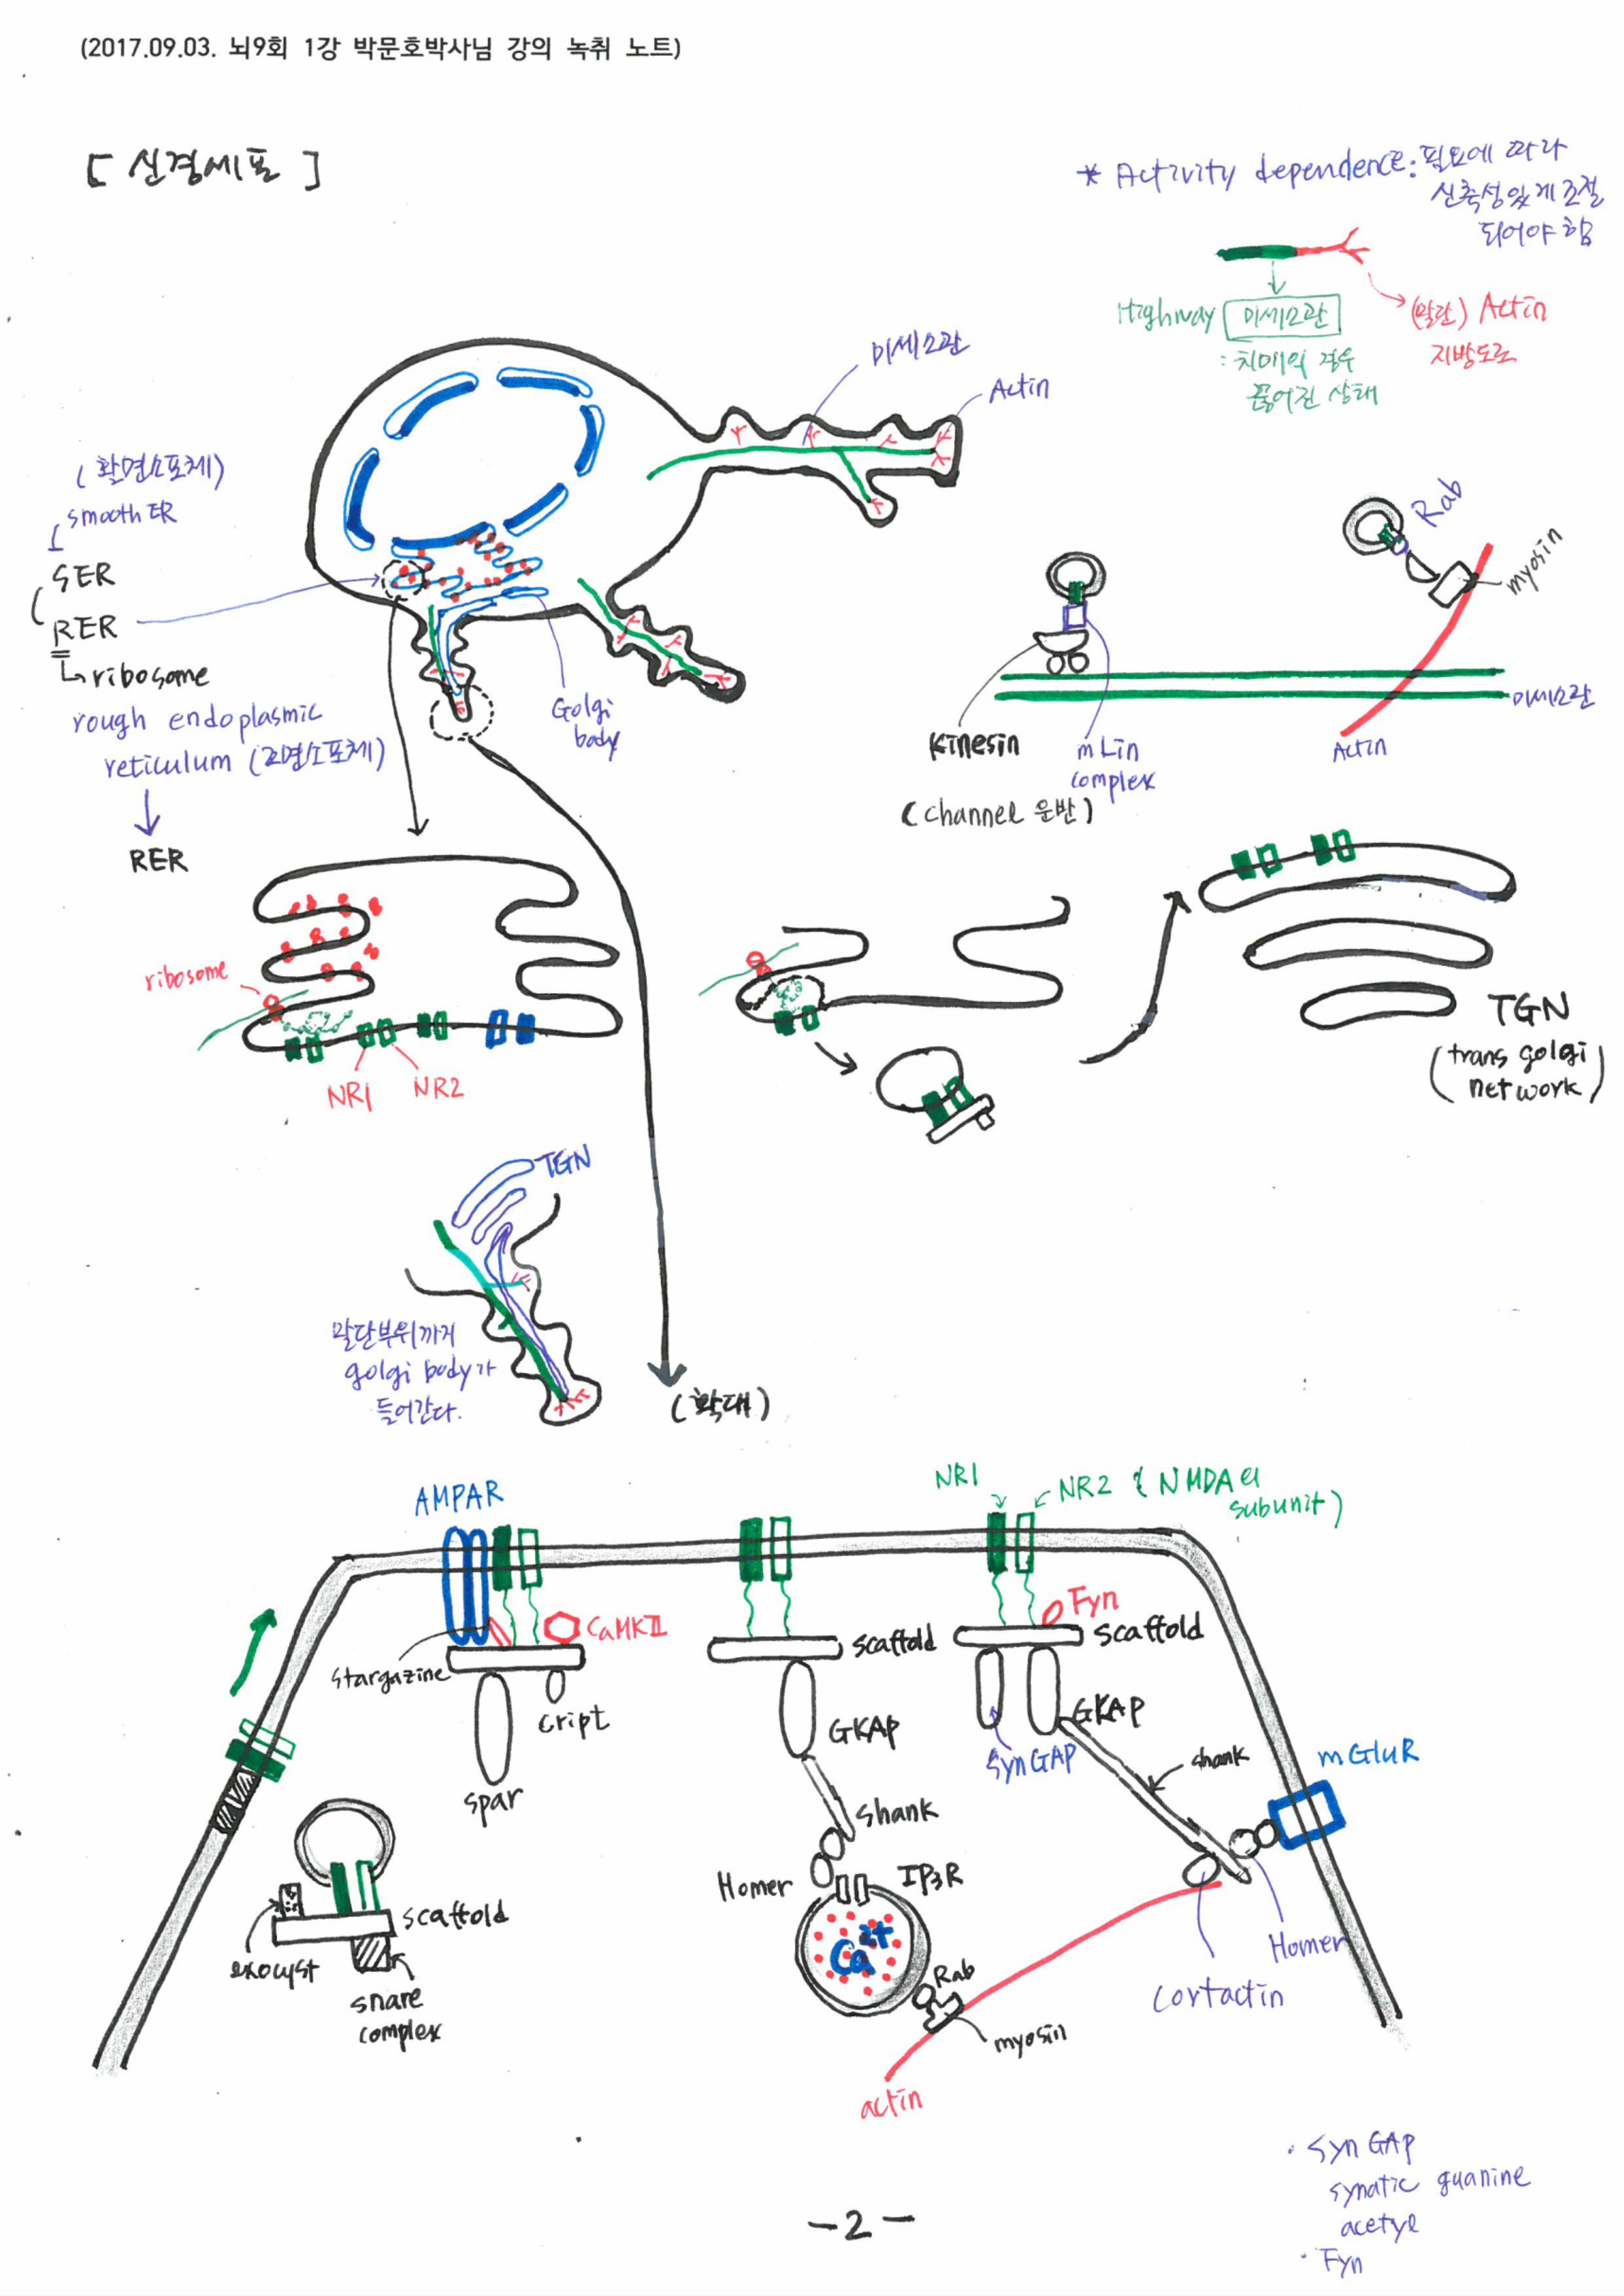 (2017.09.03. 뇌9회 1강 박문호박사님 강의 녹취 노트)
[ 신경세포 ]
* Activity dependence: 필요에 따라
신축성있게 조절
되어야 함
Highway 미세소관
(말단) Actin
지방도로
: 치매의 경우
끊어진 상태
미세소관
Actin
(활면소포체)
smooth ER
SER
RER
ribosome
rough endoplasmic
reticulum (조면소포체)
RER
Golgi
body
Rab
myosin
미세소관
Kinesin
mLin
complex
Actin
(channel 운반)
ribosome
NR1
NR2
TGN
(trans golgi
network)
TGN
말단부위까지
golgi body가
들어간다.
(확대)
AMPAR
NR1
NR2 (NMDA의
subunit)
CaMKII
Stargazine
cript
spar
scaffold
GKAP
shank
Homer
IP3R
Ca2+
Rab
myosin
actin
Fyn
scaffold
GKAP
SynGAP
shank
mGluR
Homer
Cortactin
scaffold
exocyst
snare
complex
· Syn GAP
synatic guanine
acetye
· Fyn
-2-